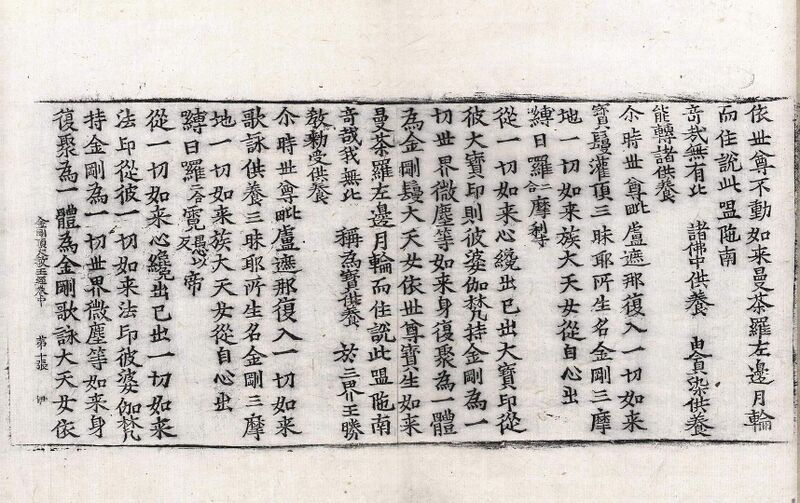 依世尊不動如來曼荼羅左邊月輪
而住說此嗢陁南
竒哉無有比　諸佛中供養　由貪染供養
能轉諸供養
尒時世尊毗盧遮那復入一切如來
寶鬘灌頂三昧耶所生名金剛三摩
地一切如來族大天女從自心出
縛日羅二合摩
從一切如來心纔出已出大寶印從
彼大寶印則彼婆伽梵持金剛為一
切世界微塵等如來身復聚為一體
為金剛鬘大天女依世尊寶生如來
曼荼羅左邊月輪而住說此嗢陁南
竒哉我無比　稱為寶供養　於三界王勝
教勅受供養
尒時世尊毗盧遮那復入一切如來
歌詠供養三昧耶所生名金剛三摩
地一切如來族大天女從自心出
縛日羅二合霓愚以反帝
從一切如來心纔出已出一切如來
法印從彼一切如來法印彼婆伽梵
持金剛為一切世界微塵等如來身
復聚為一體為金剛歌詠大天女依
金剛頂大教王經卷中　第十張